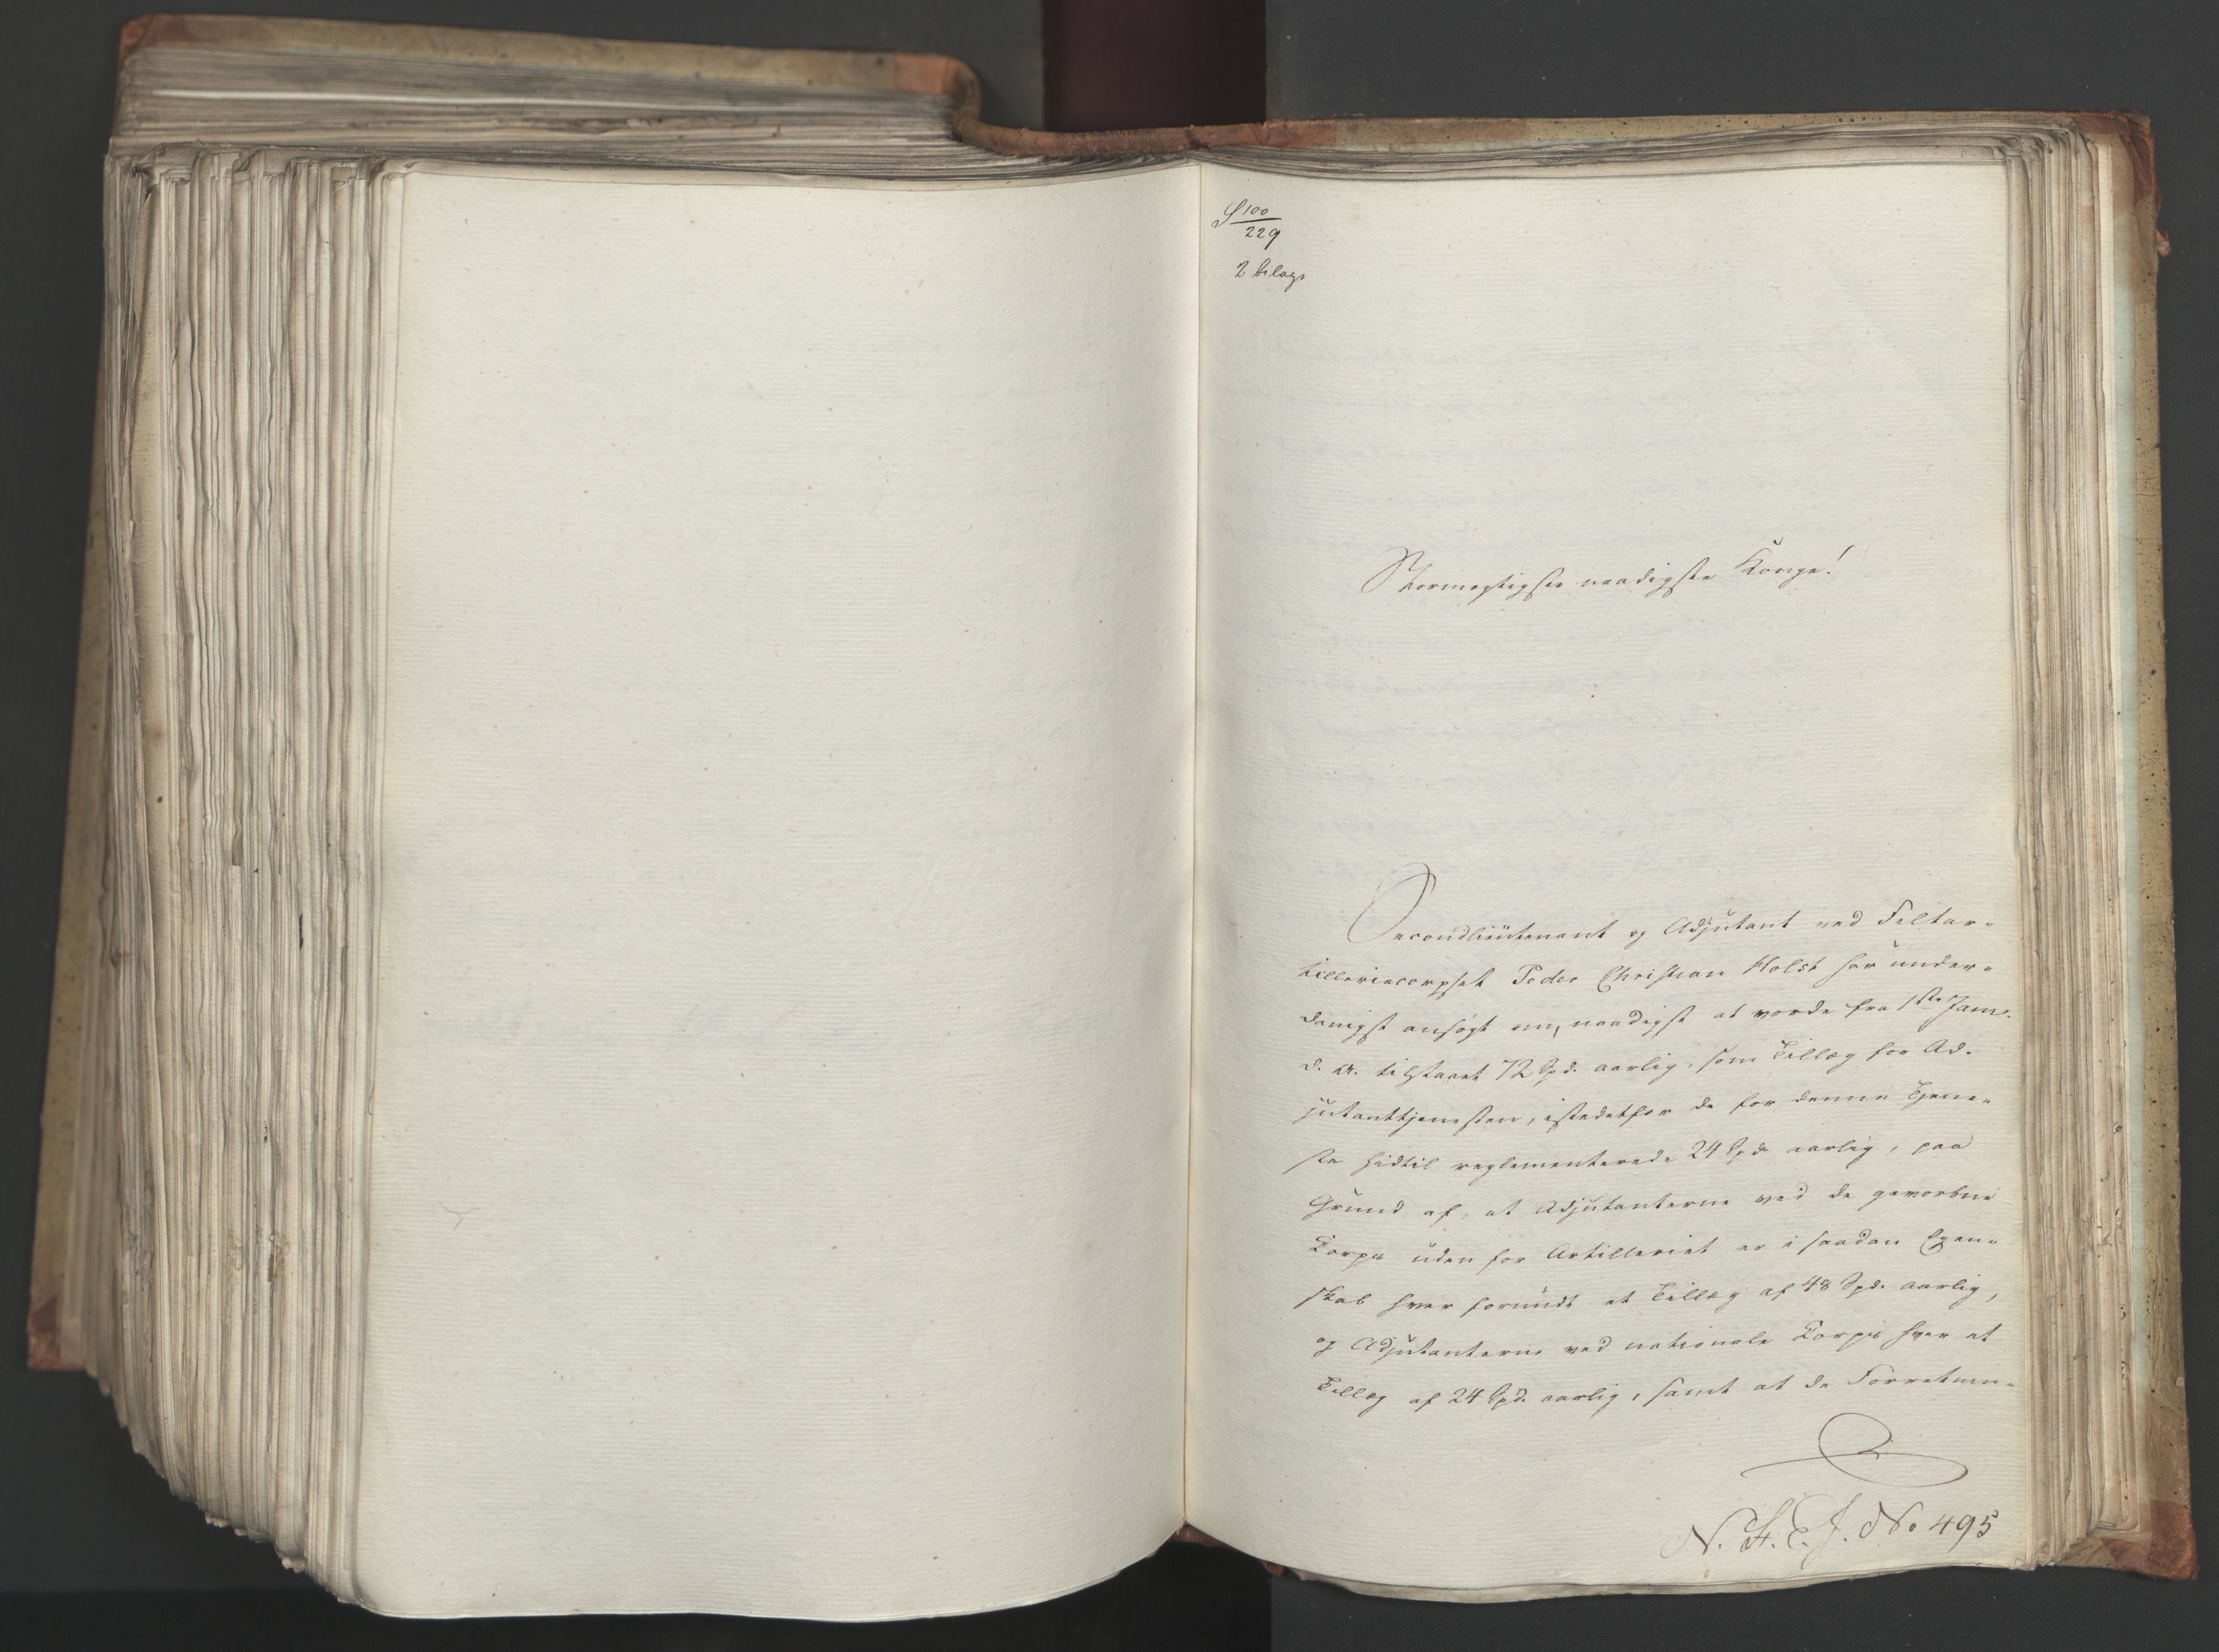 S 100
229
2 bilage
Stormægtigste naadigste Konge!
Secondlieutenant og Adjutant ved Feltar-
tilleriecorpset Peder Christian Holst har under-
danigst ansøgt om, naadigst at vorde fra 1ste Janr.
d. A. tilstaaet 72 Spd. aarlig, som Tillæg for Ad-
jutanttjenesten, istedetfor de for denne Tjene-
ste hidtil reglementerede 24 Spd. aarlig, paa
Grund af, at Adjutanterne ved de gevorbne
Corps uden for Artilleriet er i saadan Egen-
skab hver forundt et Tillæg af 48 Spd. aarlig,
og Adjutanterne ved nationale Corps hver et
Tillæg af 24 Spd. aarlig, samt at de Forretnin-
N. St. E. J. No 495